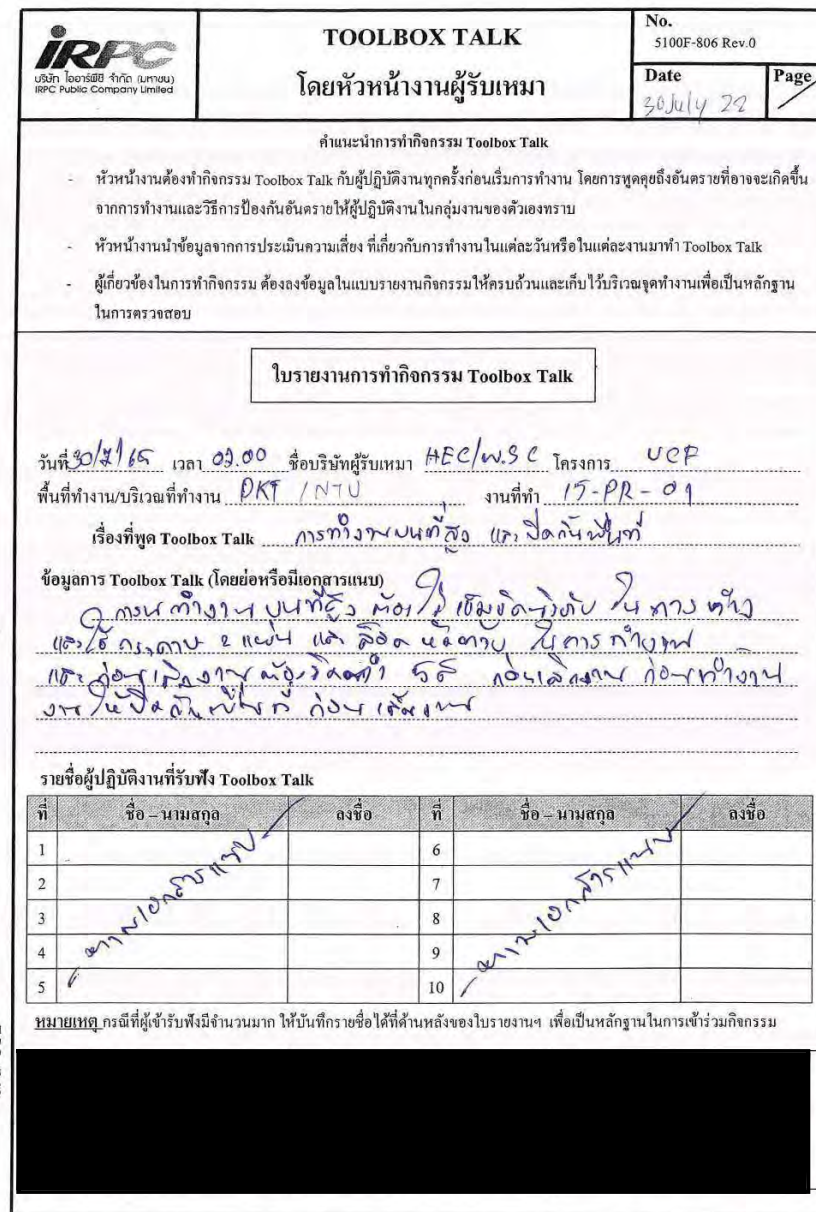 iRPC
บริษัท ไออาร์พีซี จำกัด (มหาชน)
IRPC Public Company Limited
TOOLBOX TALK
โดยหัวหน้างานผู้รับเหมา
No.
5100F-806 Rev.0
Date
30 July 22
Page
คำแนะนำการทำกิจกรรม Toolbox Talk
- หัวหน้างานต้องทำกิจกรรม Toolbox Talk กับผู้ปฏิบัติงานทุกครั้งก่อนเริ่มการทำงาน โดยการพูดคุยถึงอันตรายที่อาจจะเกิดขึ้น
จากการทำงานและวิธีการป้องกันอันตรายให้ผู้ปฏิบัติงานในกลุ่มงานของตัวเองทราบ
- หัวหน้างานนำข้อมูลจากการประเมินความเสี่ยง ที่เกี่ยวกับการทำงานในแต่ละวันหรือในแต่ละงานมาทำ Toolbox Talk
- ผู้เกี่ยวข้องในการทำกิจกรรม ต้องลงข้อมูลในแบบรายงานกิจกรรมให้ครบถ้วนและเก็บไว้บริเวณจุดทำงานเพื่อเป็นหลักฐาน
ในการตรวจสอบ
ใบรายงานการทำกิจกรรม Toolbox Talk
วันที่ 30/7/65 เวลา ชื่อบริษัทผู้รับเหมา HEC/W.SC โครงการ UCF
พื้นที่ทำงาน/บริเวณที่ทำงาน DKT / NTU งานที่ทำ 15-PR-01
เรื่องที่พูด Toolbox Talk การทำงานบนที่สูง และ ปิดกั้นพื้นที่
ข้อมูลการ Toolbox Talk (โดยย่อหรือมีเอกสารแนบ)
การทำงานบนที่สูง ต้องใส่เข็มขัด
และใช้ 2 แผ่น และ ล็อค ในการทำงาน
และก่อนเลิกงานต้อง 5ส ก่อนเลิกงาน ก่อนทำงาน
ให้ปิดกั้นพื้นที่ ก่อนเริ่มงาน
รายชื่อผู้ปฏิบัติงานที่รับฟัง Toolbox Talk
ที่ ชื่อ – นามสกุล ลงชื่อ ที่ ชื่อ – นามสกุล ลงชื่อ
1 6
2 7
3 8
4 9
5 10
ตามเอกสารแนบ
ตามเอกสารแนบ
หมายเหตุ กรณีที่ผู้เข้ารับฟังมีจำนวนมาก ให้บันทึกรายชื่อได้ที่ด้านหลังของใบรายงานฯ เพื่อเป็นหลักฐานในการเข้าร่วมกิจกรรม